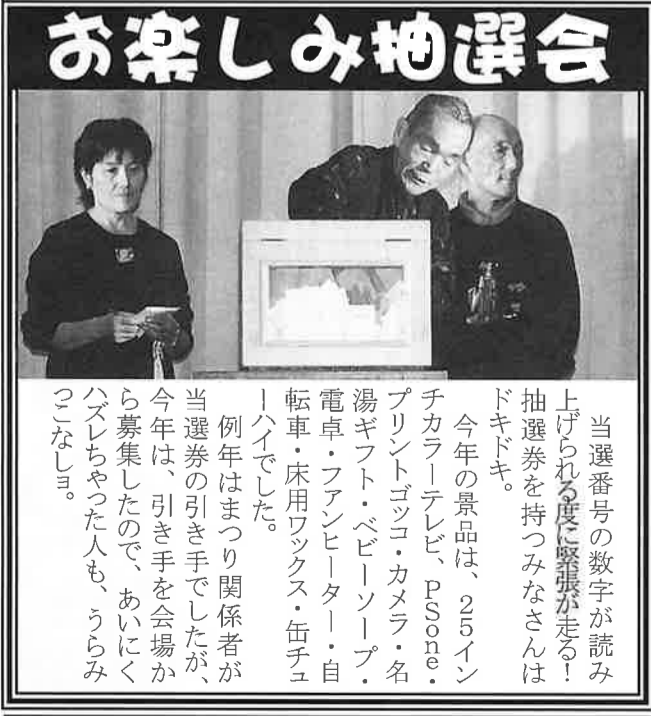 お楽しみ抽選会
　当選番号の数字が読み
上げられる度に緊張が走る！
抽選券を持つみなさんは
ドキドキ。
　今年の景品は、２５イン
チカラーテレビ、PSone・
プリントゴッコ・カメラ・名
湯ギフト・ベビーソープ・
電卓・ファンヒーター・自
転車・床用ワックス・缶チュ
ーハイでした。
　例年はまつり関係者が
当選券の引き手でしたが、
今年は、引き手を会場か
ら募集したので、あいにく
ハズレちゃった人も、うらみ
っこなしョ。